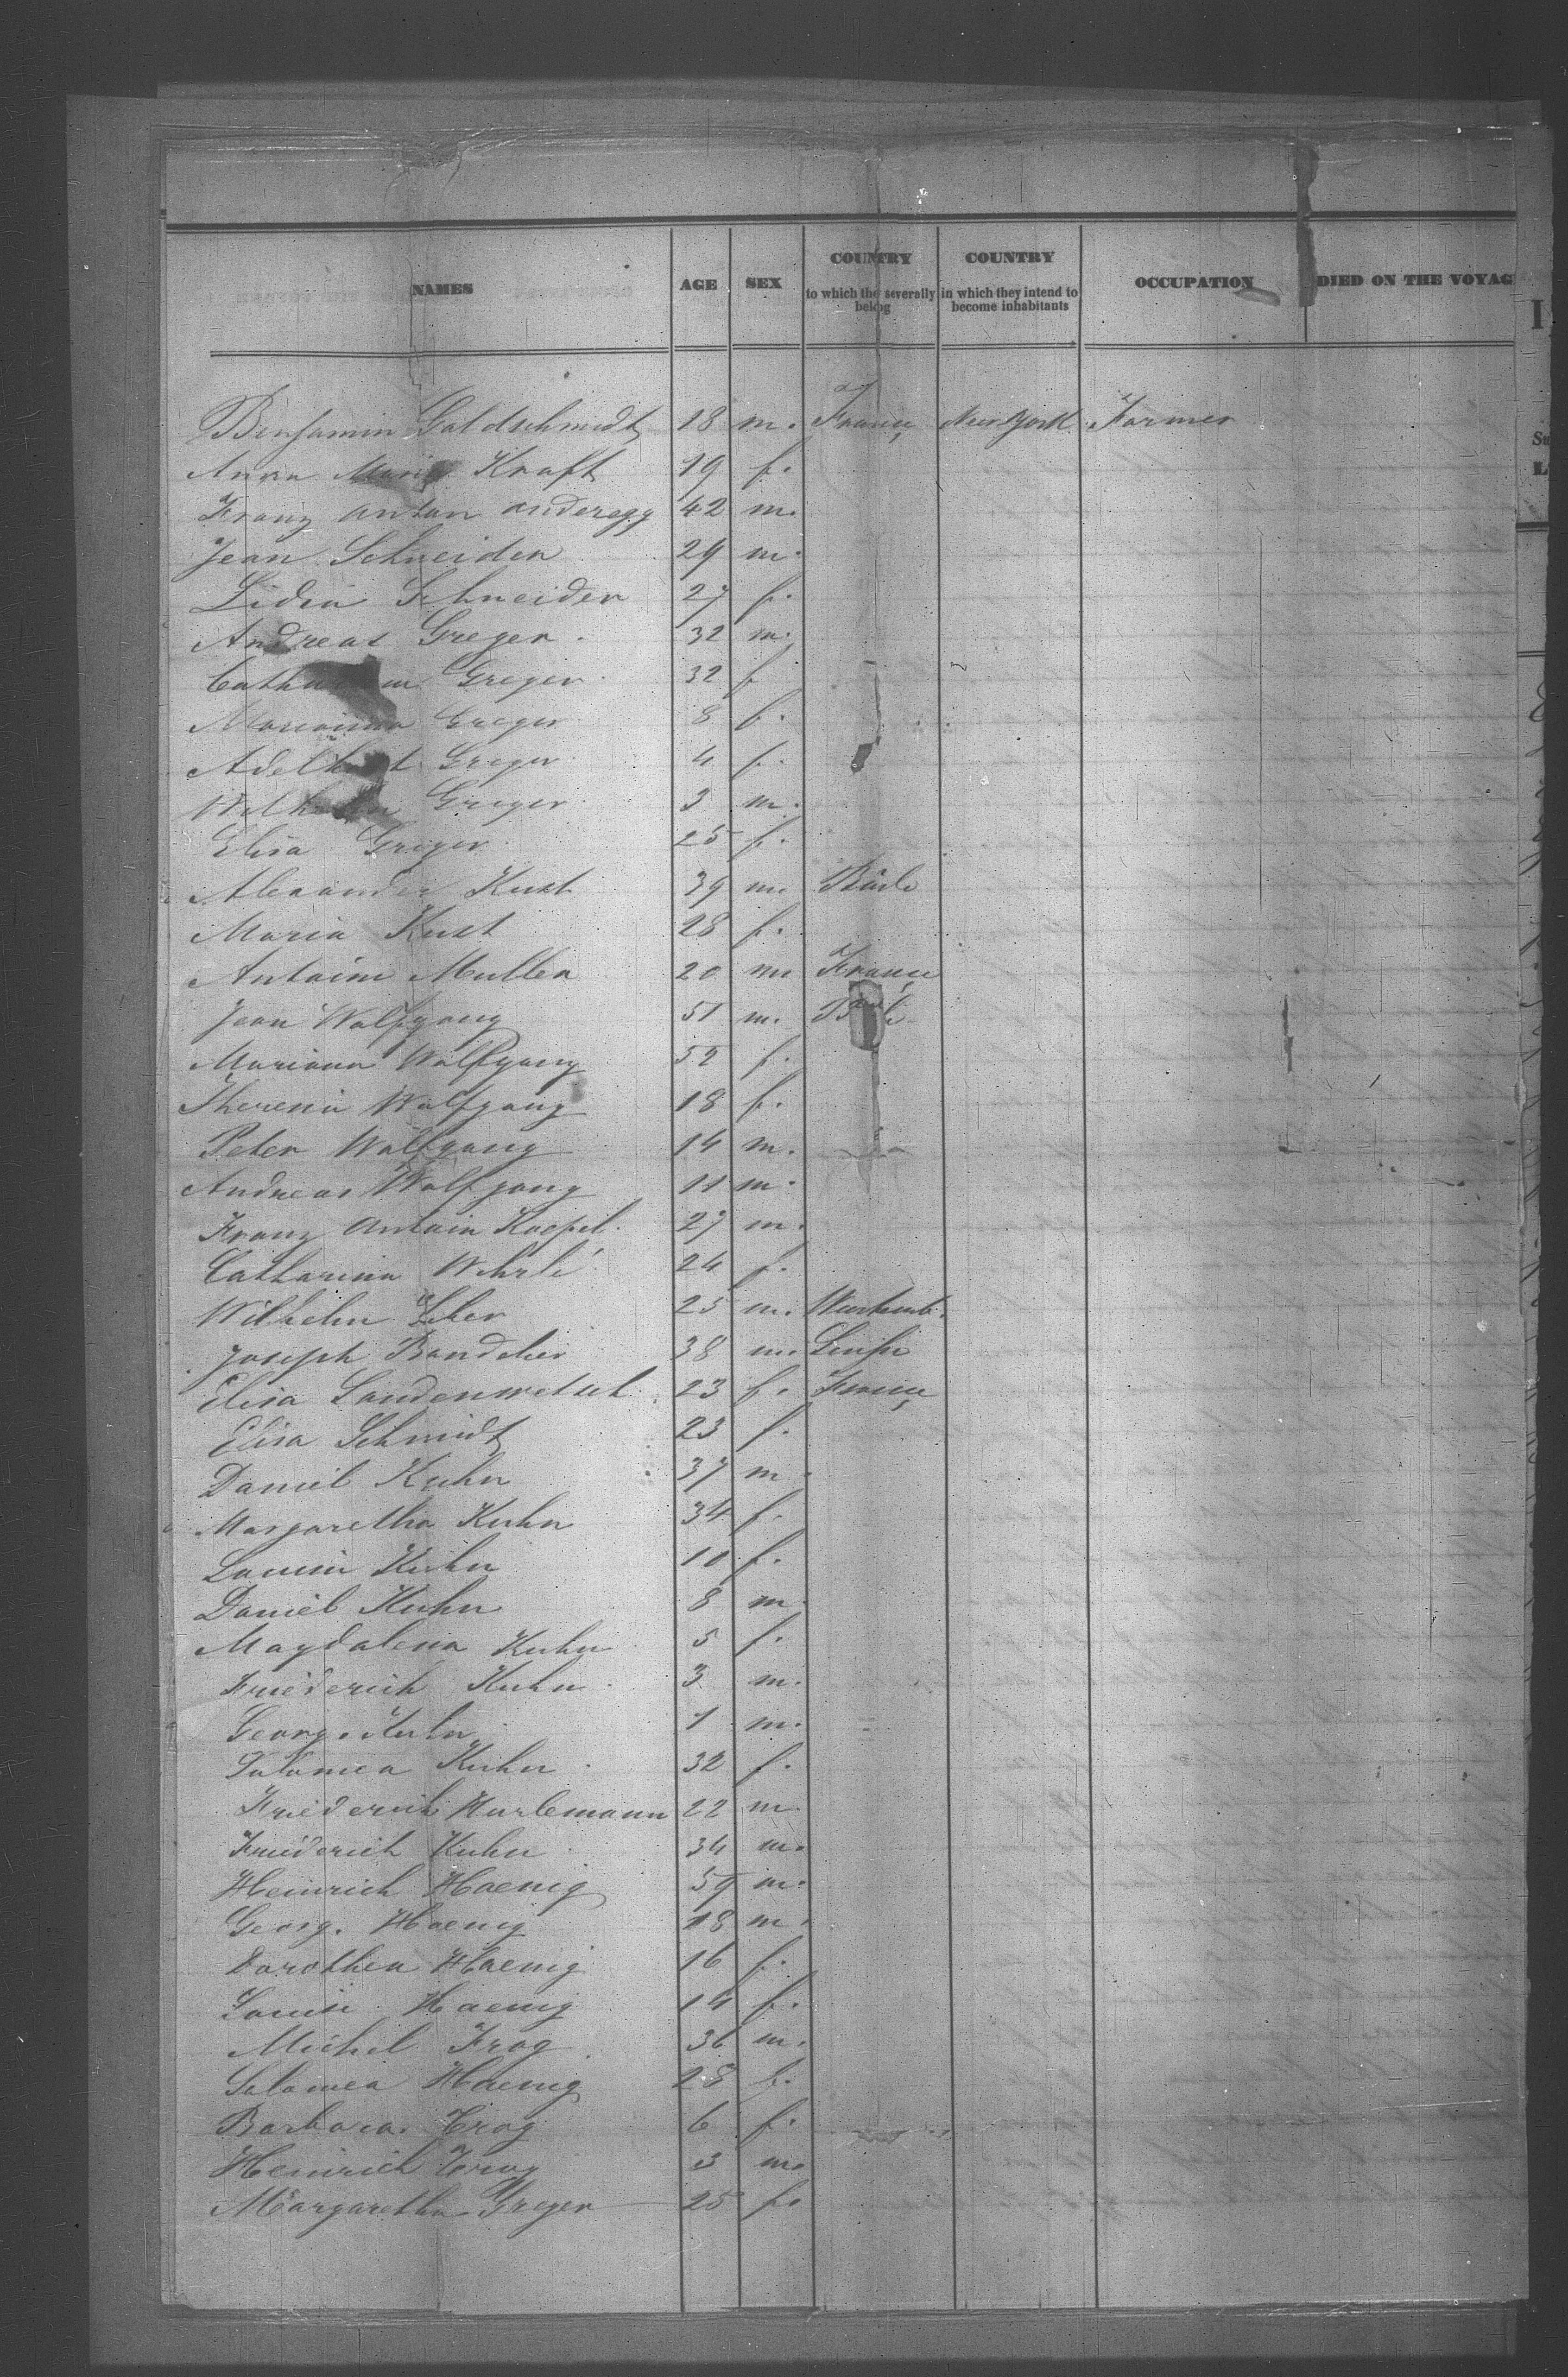 NAMES AGE SEX COUNTRY to which the severally belong COUNTRY in which they intend to become inhabitants OCCUPATION DIED ON THE VOYAG
Benjamin Goldschmidt 18 m. France New York Farmer
Anna Maria Kraft 19 f.
Franz Anton Anderegg 42 m.
Jean Schneider 29 m.
Lidia Schneider 27 f.
Andreas Greger 32 m.
Greger 32 f
Greger 8 f.
Greger 4 f.
Greger 3 m.
Elisa Greger 25 f.
Alexander Kust 39 m.
Maria Kust 28 f.
Antoine Muller 20 m France
Jean Wolfgang 51 m.
Mariana Wolfgang 52 f.
Theresia Wolfgang 18 f.
Peter Wolfgang 14 m.
Andreas Wolfgang 11 m.
Franz Antoin 27 m.
Catharina Wehrlé 24 f.
Wilhelm 25 m.
Joseph 38 m.
Elisa 23 f. France
Elisa Schmidt 23 f.
Daniel Kuhn 37 m
Margaretha Kuhn 34 f.
Kuhn f.
Daniel Kuhn 8 m.
Magdalena Kuhn 5 f.
Friederich Kuhn 3 m.
Georg Kuhn 1 m.
Salomea Kuhn 32 f.
Friederich Hurlemann 22 m.
Friederich Kuhn 34 m.
Heinrich Haenig 59 m.
Georg. Haenig 18 m.
Dorothea Haenig 16 f.
Louise Haenig 14 f.
Michel Trog 36 m.
Salomea Haenig 28 f.
Barbara Trog 6 f.
Heinrich Trog 3 m.
Margaretha Greger 25 f.